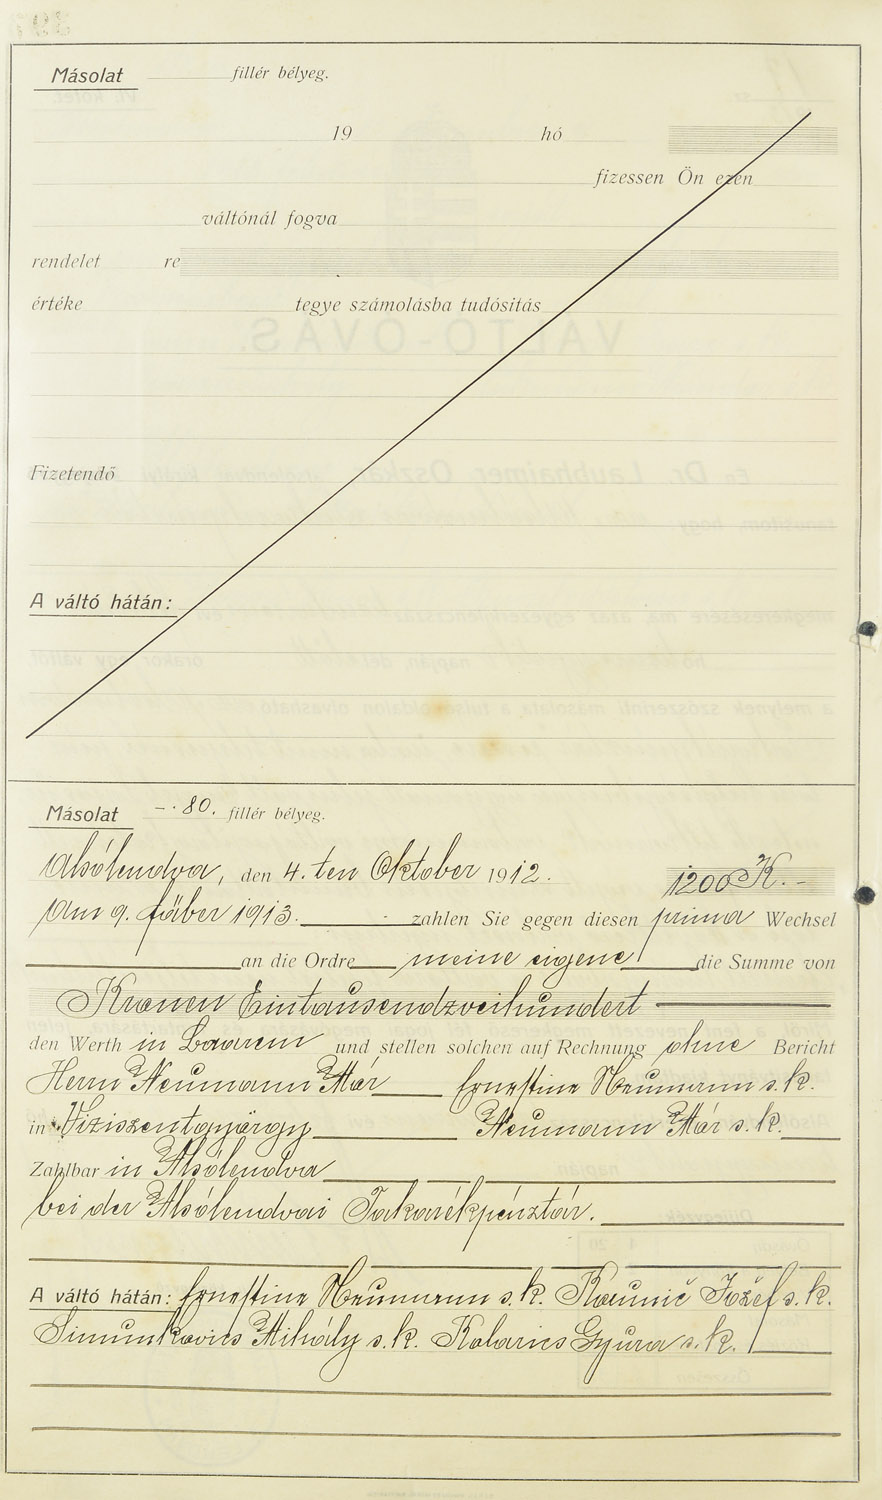 Másolat fillér bélyeg.
19 hó
fizessen Ön ezen
váltónál fogva
rendelet re
értéke tegye számolásba tudósitás
Fizetendő
A váltó hátán:
Másolat -.80. fillér bélyeg.
Alsólendva, den 4. ten Oktober 1912. 1200 K.-
Am 9. fäber 1913. zahlen Sie gegen diesen prima Wechsel
an die Ordre meine eigene die Summe von
Kronen Eintausendzweihundert
den Werth in Baarem und stellen solchen auf Rechnung ohne Bericht
Herrn Neumann Mór Ernestine Neumann s. k.
in Viziszentgyörgy Neumann Mór s. k.
Zahlbar in Alsólendva
bei der Alsólendvai Takarékpénztár.
A váltó hátán: Ernestine Neumann s. k. Raunič Jožef s. k.
Simunkovics Mihály s. k. Kolarics Gyura s. k.